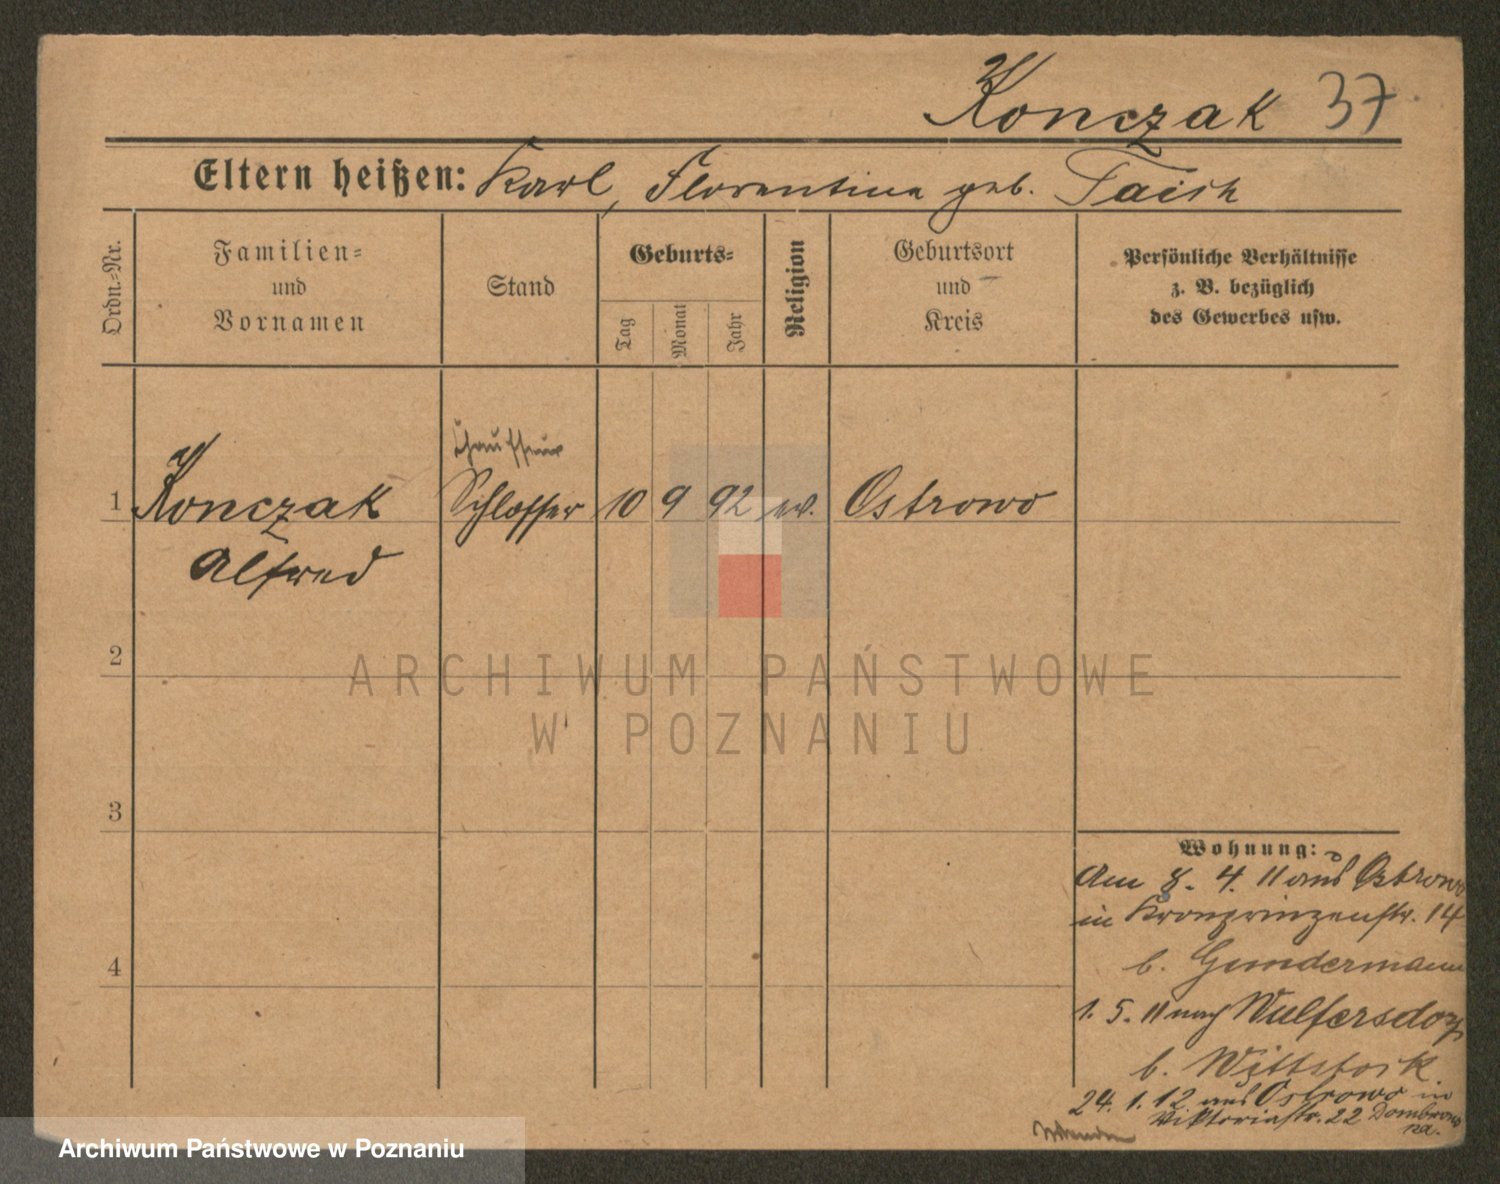 Konczak 37
Eltern heißen: Karl, Florentina geb. Taish
Ordn.-Nr.
Familien-
und
Vornamen
Stand
Geburts-
Tag
Monat
Jahr
Religion
Geburtsort
und
Kreis
Persönliche Verhältnisse
z. B. bezüglich
des Gewerbes usw.
Chauffeur
1 Konczak Schlosser 10 9 92 ev. Ostrowo
Alfred
2
3
4
Wohnung:
Am 8. 4. 11 aus Ostrowo
in Kronprinzenstr. 14
b. Gundermann
1. 5. 11 nach Wulfersdorf
b. Wittstock
24. 1. 12 aus Ostrowo in
Viktoriastr. 22
ARCHIWUM PAŃSTWOWE
W POZNANIU
Archiwum Państwowe w Poznaniu